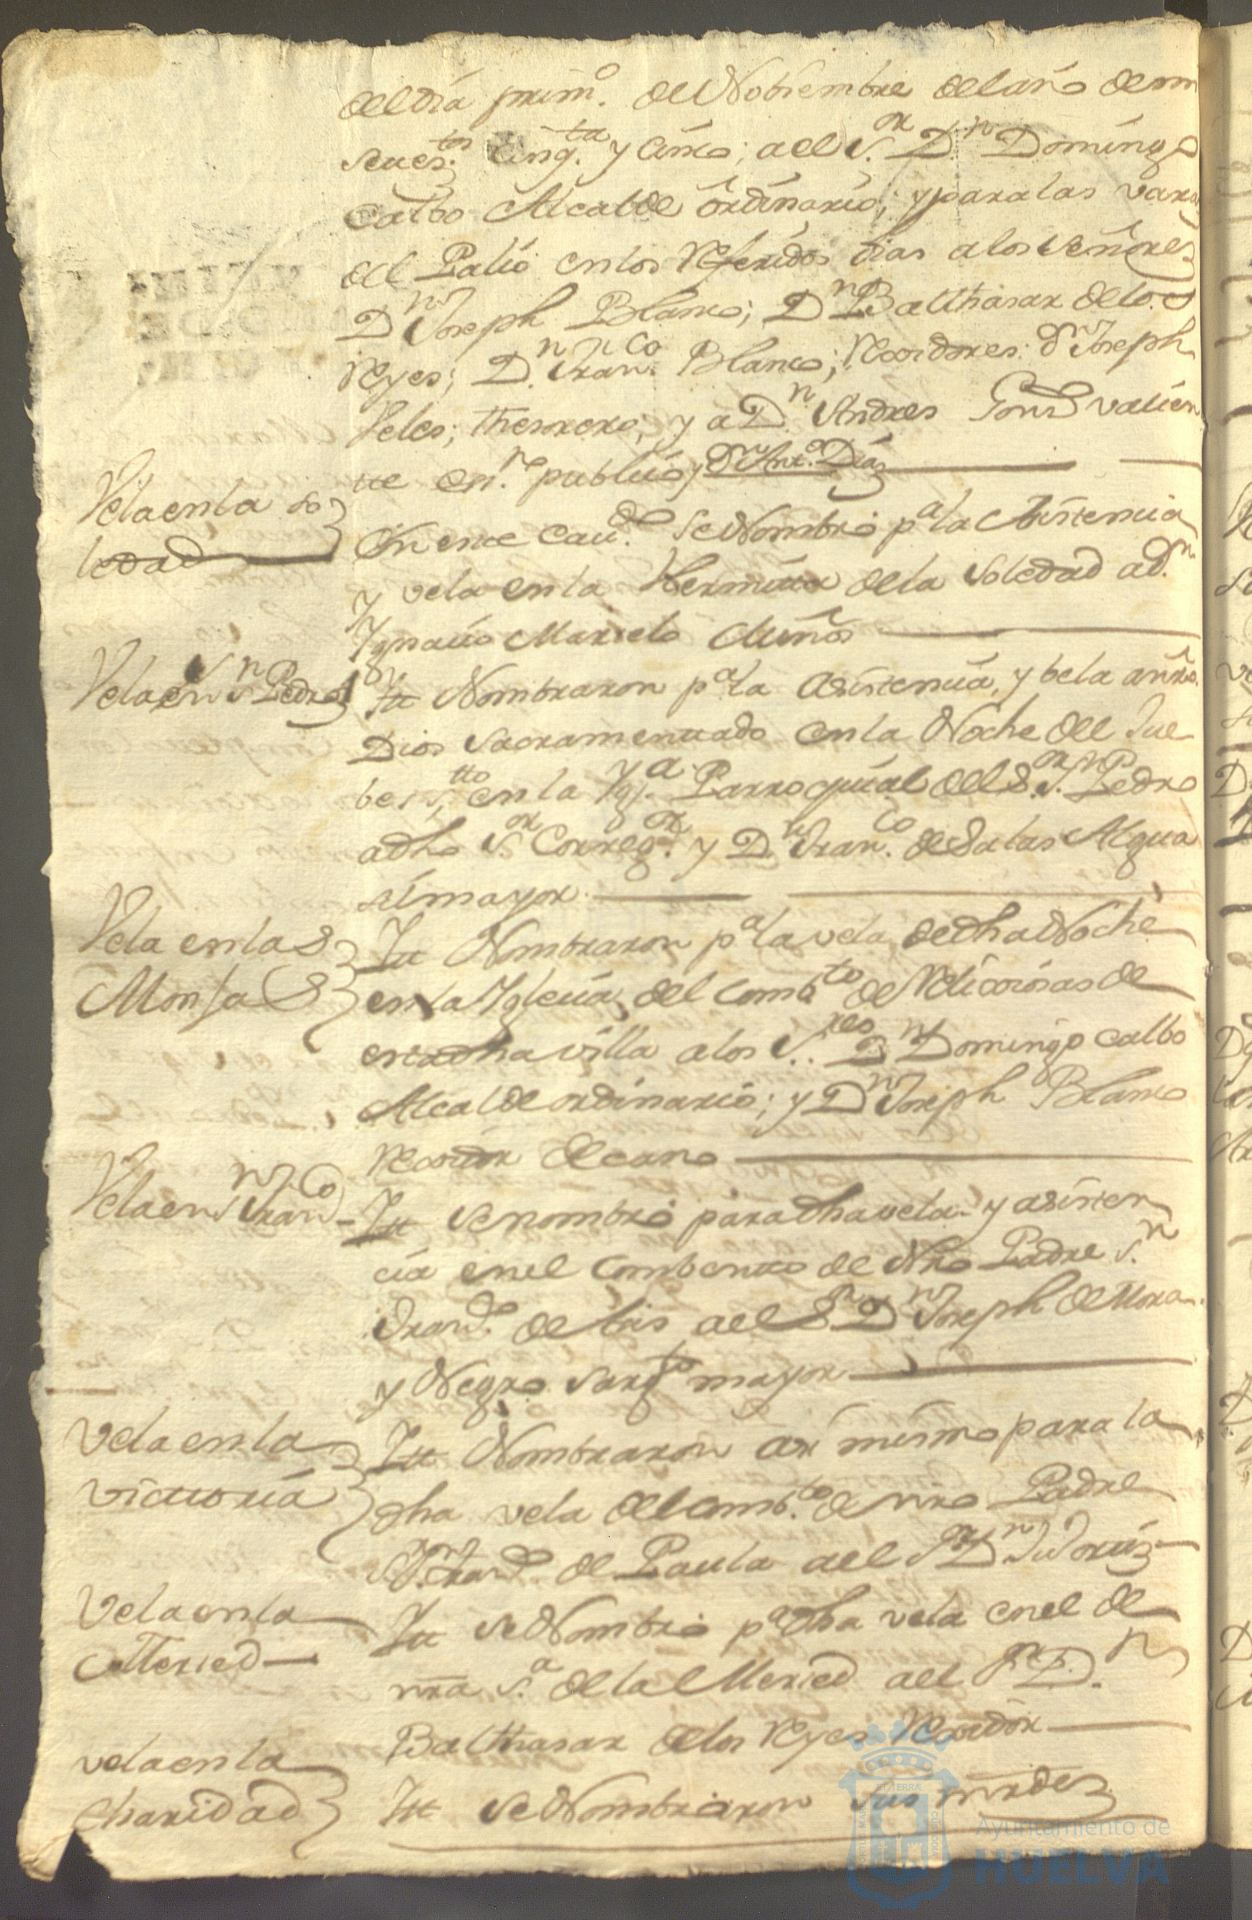 del día prim.o de Nobiembre del año de mil
setes.tos cinq.ta y cinco; a el S.or D.n Domingo
Calbo Alcalde ordinario; y para las varas
del Palio en los referidos dias a los señores
D.n Joseph Blanco; D.n Balthasar de los
Reyes; D.n Fran.co Blanco; Rexidores: d.n Joseph
Veles; thesorero; y a D.n Andres Gons valien
te en.no publico, y d.n Ant.o Díaz
Vela en la so
ledad
En este Cav.do se Nombró p.a la asistencia
y vela en la Hermita de la Soledad a d.n
Ygnacio Marselo Muños
Vela en S.n Pedro
Itt Nombraron p.a la asistencia, y bela a nro.
Dios Sacramentado en la Noche del Jue
bes s.tto en la Ygl.a Parroquial del S.or S.n Pedro
a dho S.or Correg.or y D.n Fran.co de Salas Algua
sil mayor
Vela en las
Monjas
Itt Nombraron p.a la vela de dha Noche
en la Yglecia del Comb.to de Relixiosas de
esta dha villa a los S.res D.n Domingo Calbo
Alcalde ordinario; y D.n Joseph Blanco
Rexidor decano
Vela en S.n Fran.co
Itt se nombró para dha vela y asisten
cia en el Combento de Nro Padre S.n
Fran.co de Asis a el S.r D.n Joseph de Mora
y Negro Sarg.to mayor
Vela en la
Victoria
Itt Nombraron asi mismo para la
dha vela del comb.to de nro Padre
S.n Fran.co de Paula a el S.r D.n
Vela en la
Merced
Itt se Nombró p.a dha vela en el de
nra S.a de la Merced a el S.r D.n
Balthasar de los Reyes Rexidor
vela en la
Charidad
Itt se Nombraron sus mrdes
Ayuntamiento de
HUELVA